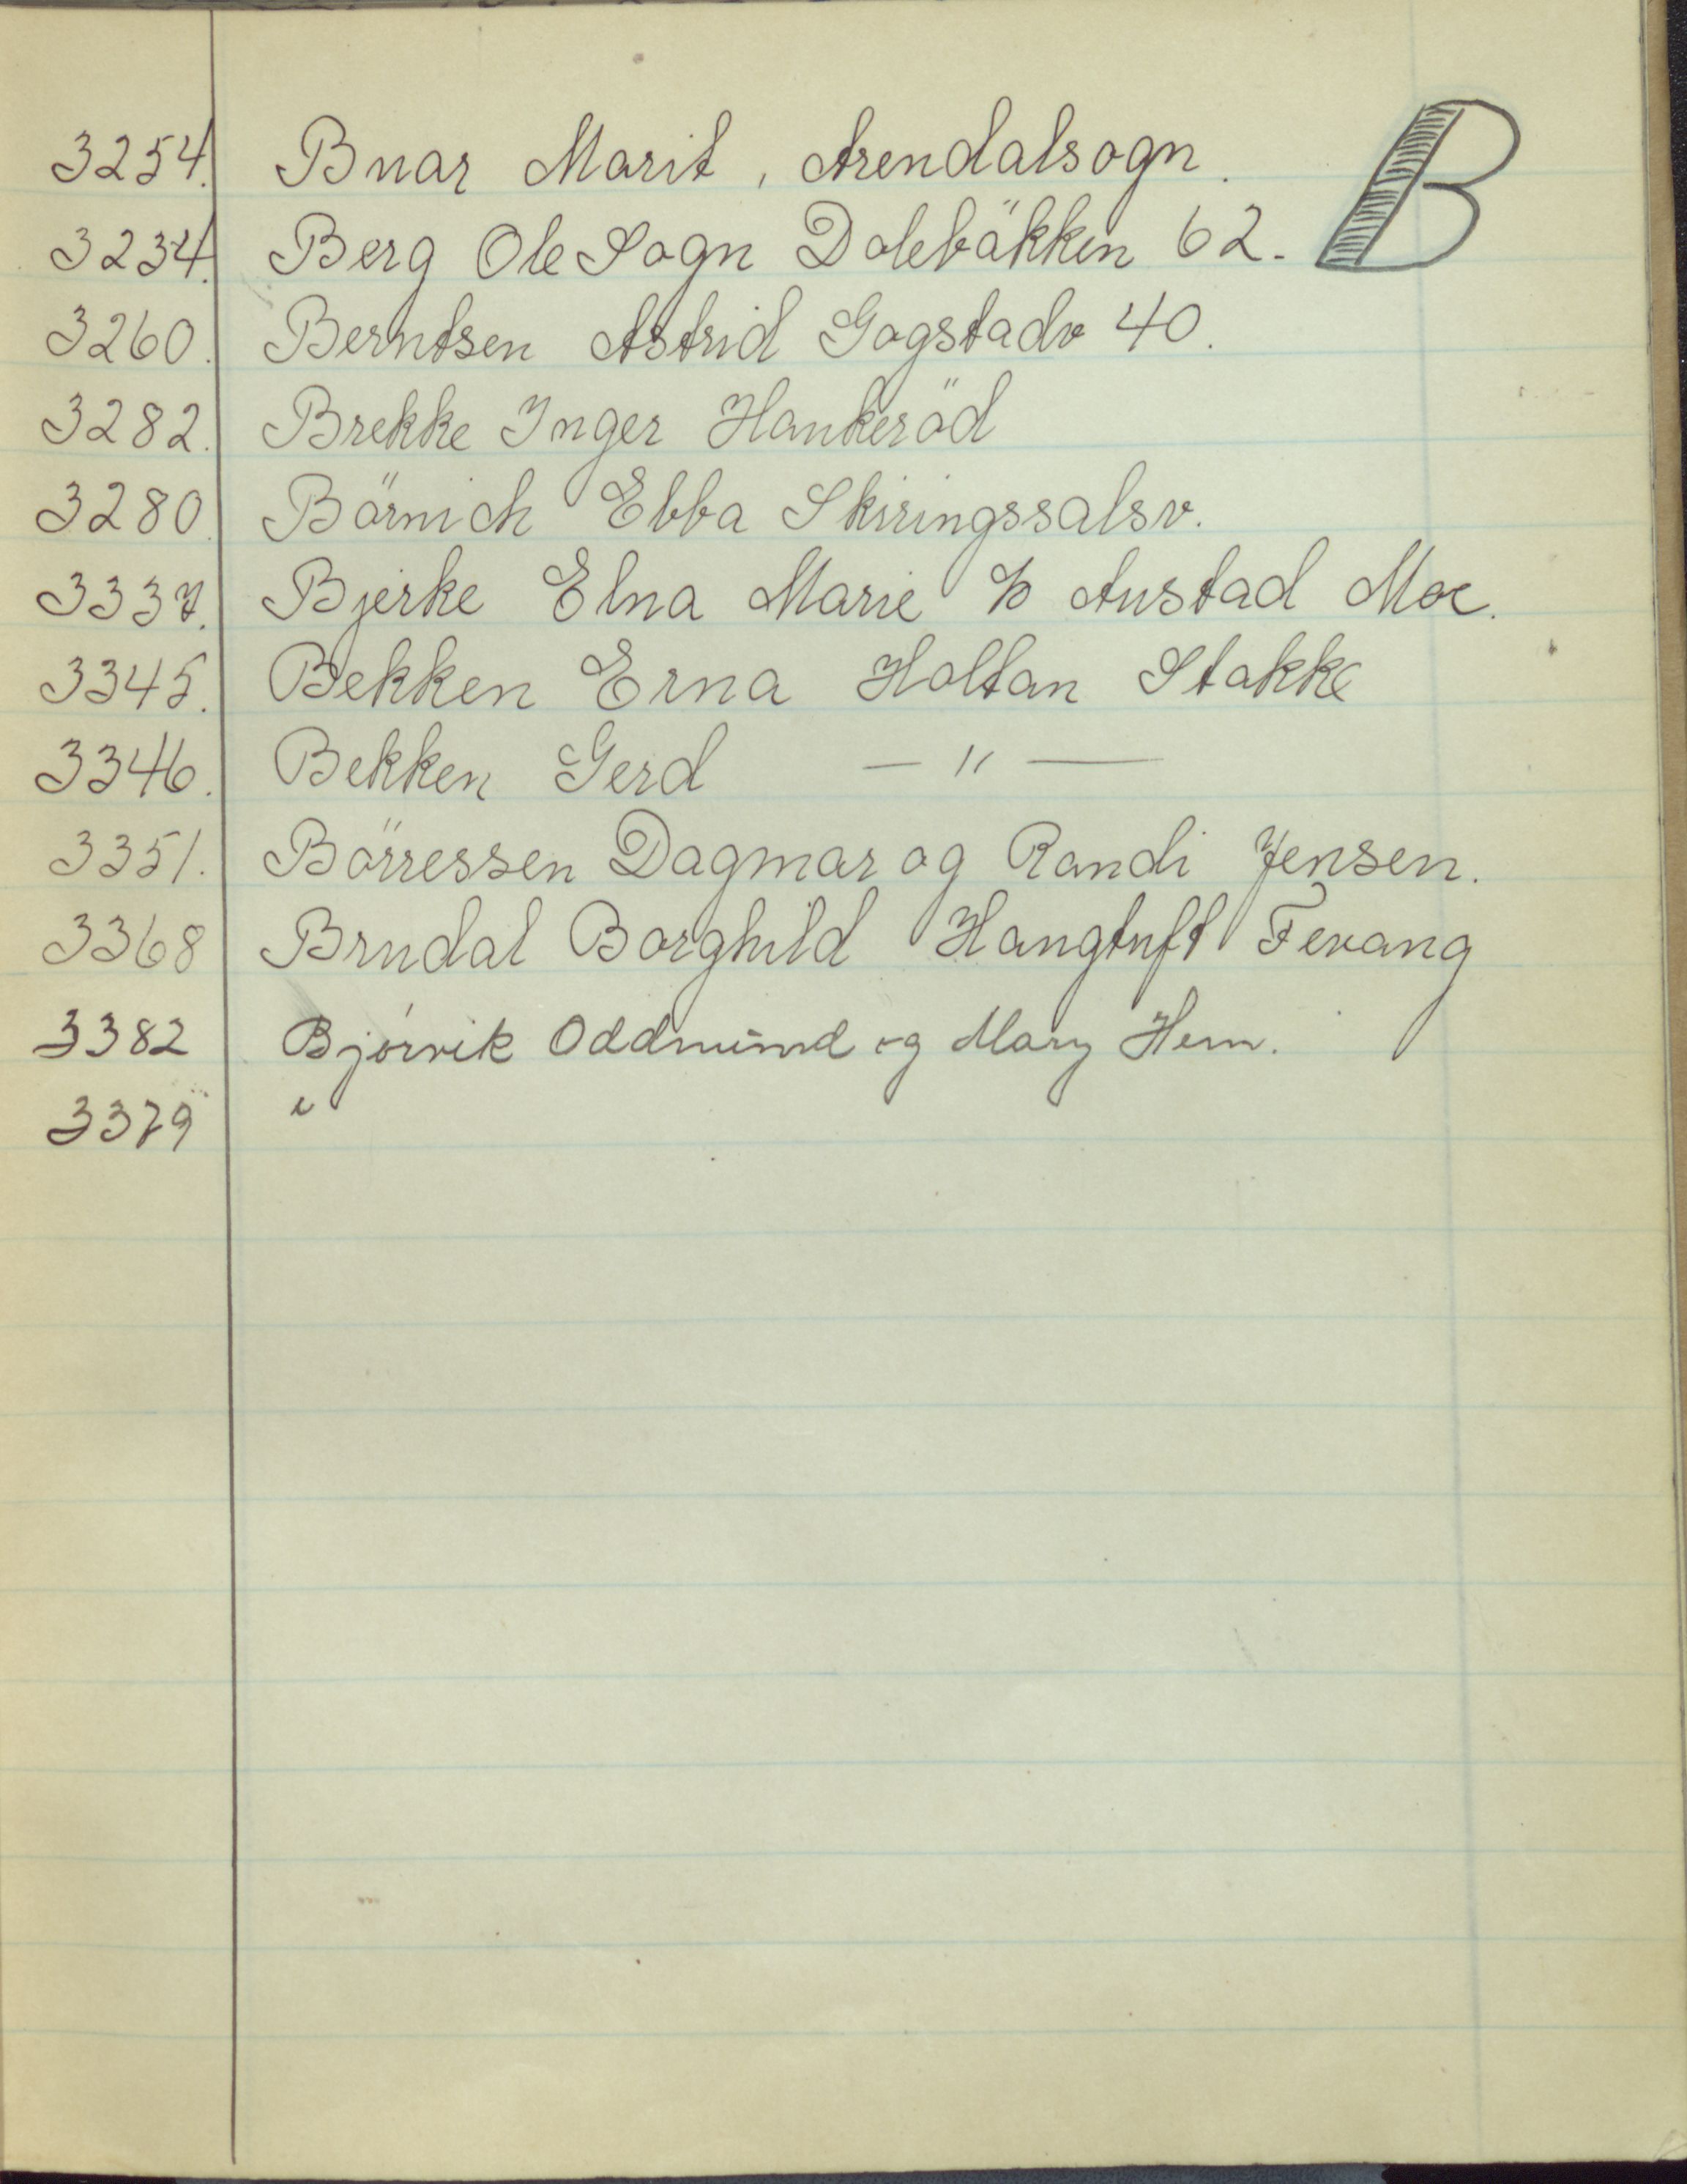 B
3254. Buar Marit, Arendalsogn.
3234. Berg Ole Sogn Dolebäkken 62.
3260. Berntsen Astrid Gogstadv 40.
3282. Brekke Inger Hankeröd
3280. Börnich Ebba Skiringssalsv.
3337. Bjerke Elna Marie % Austad Moe.
3345. Bekken Erna Holtan Stokke
3346. Bekken Gerd — " —
3351. Börressen Dagmar og Randi Jensen.
3368 Brudal Borghild Haugtuft Fevang
3382 Bjórvik Oddmund og Mary Hem.
3379 "